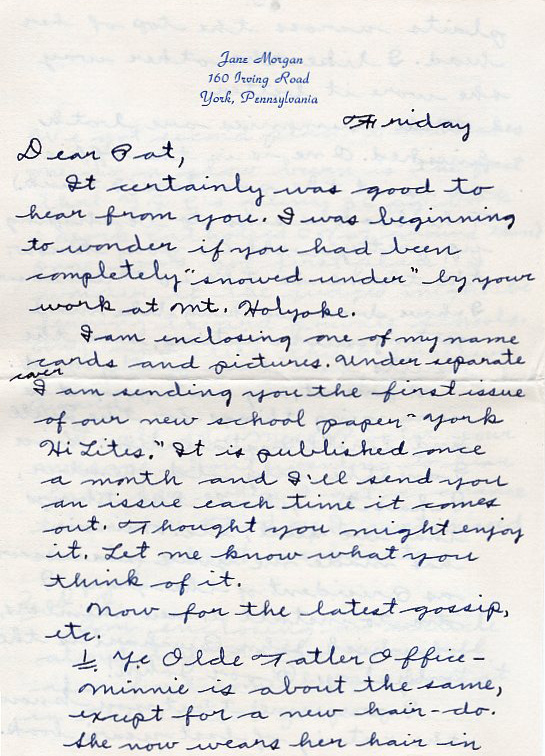 Jane Morgan
160 Irving Road
York, Pennsylvania
Friday
Dear Pat,
It certainly was good to
hear from you. I was beginning
to wonder if you had been
completely "snowed under" by your
work at Mt. Holyoke.
I am enclosing one of my name
cards and pictures. Under separate
cover
I am sending you the first issue
of our new school paper "York
Hi Lites." It is published once
a month and I'll send you
an issue each time it comes
out. Thought you might enjoy
it. Let me know what you
think of it.
Now for the latest gossip,
etc.
1. Ye Olde Tatler Office-
Minnie is about the same,
except for a new hair-do.
She now wears her hair in